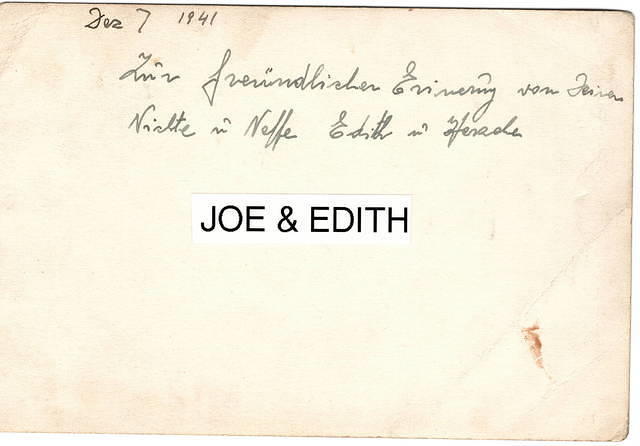 Dez 7 1941
Zur freündlichen Erinerüg von Deinen
Nichte ü Neffe Edith ü
JOE & EDITH